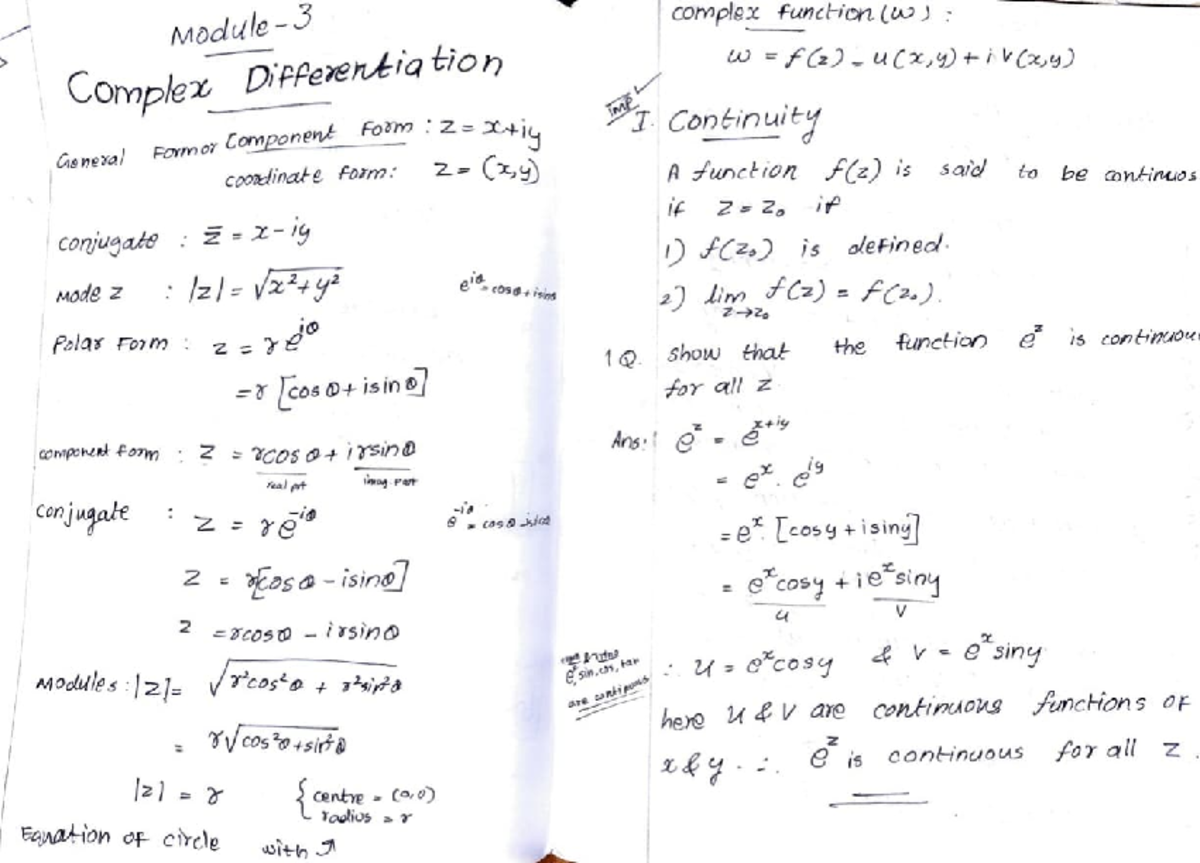 Module-3
Complex Differentiation
General Form or Component Form : z = x+iy
coordinate form: z = (x,y)
conjugate : z̄ = x-iy
Mode z : |z| = √x²+y²
e^iθ = cosθ + isinθ
Polar Form : z = re^iθ
= r [cosθ + isinθ]
component form : z = rcosθ + irsinθ
real prt imag. part
conjugate : z = re^-iθ
e^-iθ = cosθ - isinθ
z = r[cosθ - isinθ]
z = rcosθ - irsinθ
Modules : |z| = √r²cos²θ + r²sin²θ
= r√cos²θ + sin²θ
|z| = r { centre = (0,0)
radius = r
Equation of circle with ↗
complex function (w) :
w = f(z) = u(x,y) + iv(x,y)
Imp
I. Continuity
A function f(z) is said to be continuos
if z = z₀ if
1) f(z₀) is defined.
2) lim f(z) = f(z₀).
z→z₀
1Q. show that the function e^z is continuou
for all z
Ans: e^z = e^x+iy
= e^x . e^iy
= e^x. [cosy + isiny]
= e^x cosy + ie^x siny
u v
e^x, sin, cos, tan
are continuous
∴ u = e^x cosy & v = e^x siny
here u & v are continuous functions of
x & y . ∴ e^z is continuous for all z.